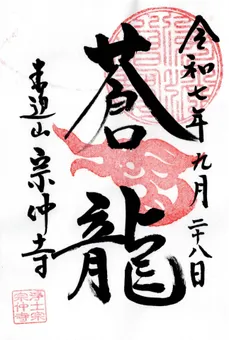 令和七年九月二十八日
蒼龍
来迎山宗仲寺
浄土宗
宗仲寺